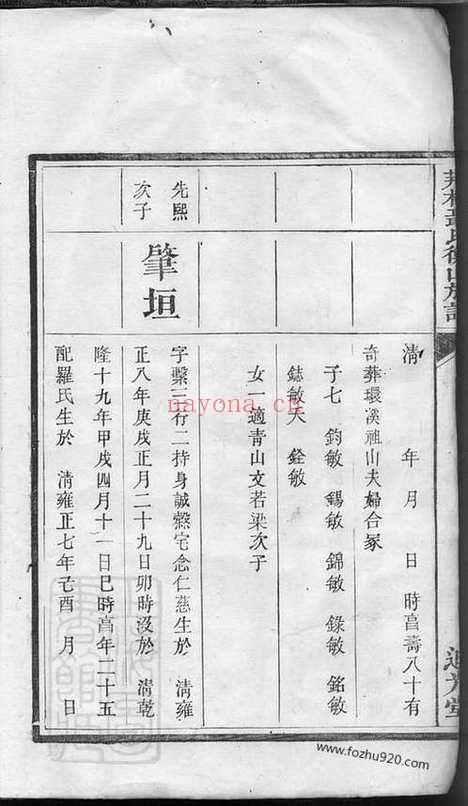 清 年 月 日 時享壽八十有
奇葬環溪祖山夫婦合冢
子七 鈞敏 錫敏 錦敏 錄敏 銘敏
鋕敏夭 銓敏
女一適青山文若梁次子
先熙
次子
肇垣
字繫三行二持身誠慤宅念仁慈生於 清雍
正八年庚戌正月二十九日卯時沒於 清乾
隆十九年甲戌四月十一日巳時享年二十五
配羅氏生於 清雍正七年己酉 月 日
nayona.cn
www.fozhu920.com